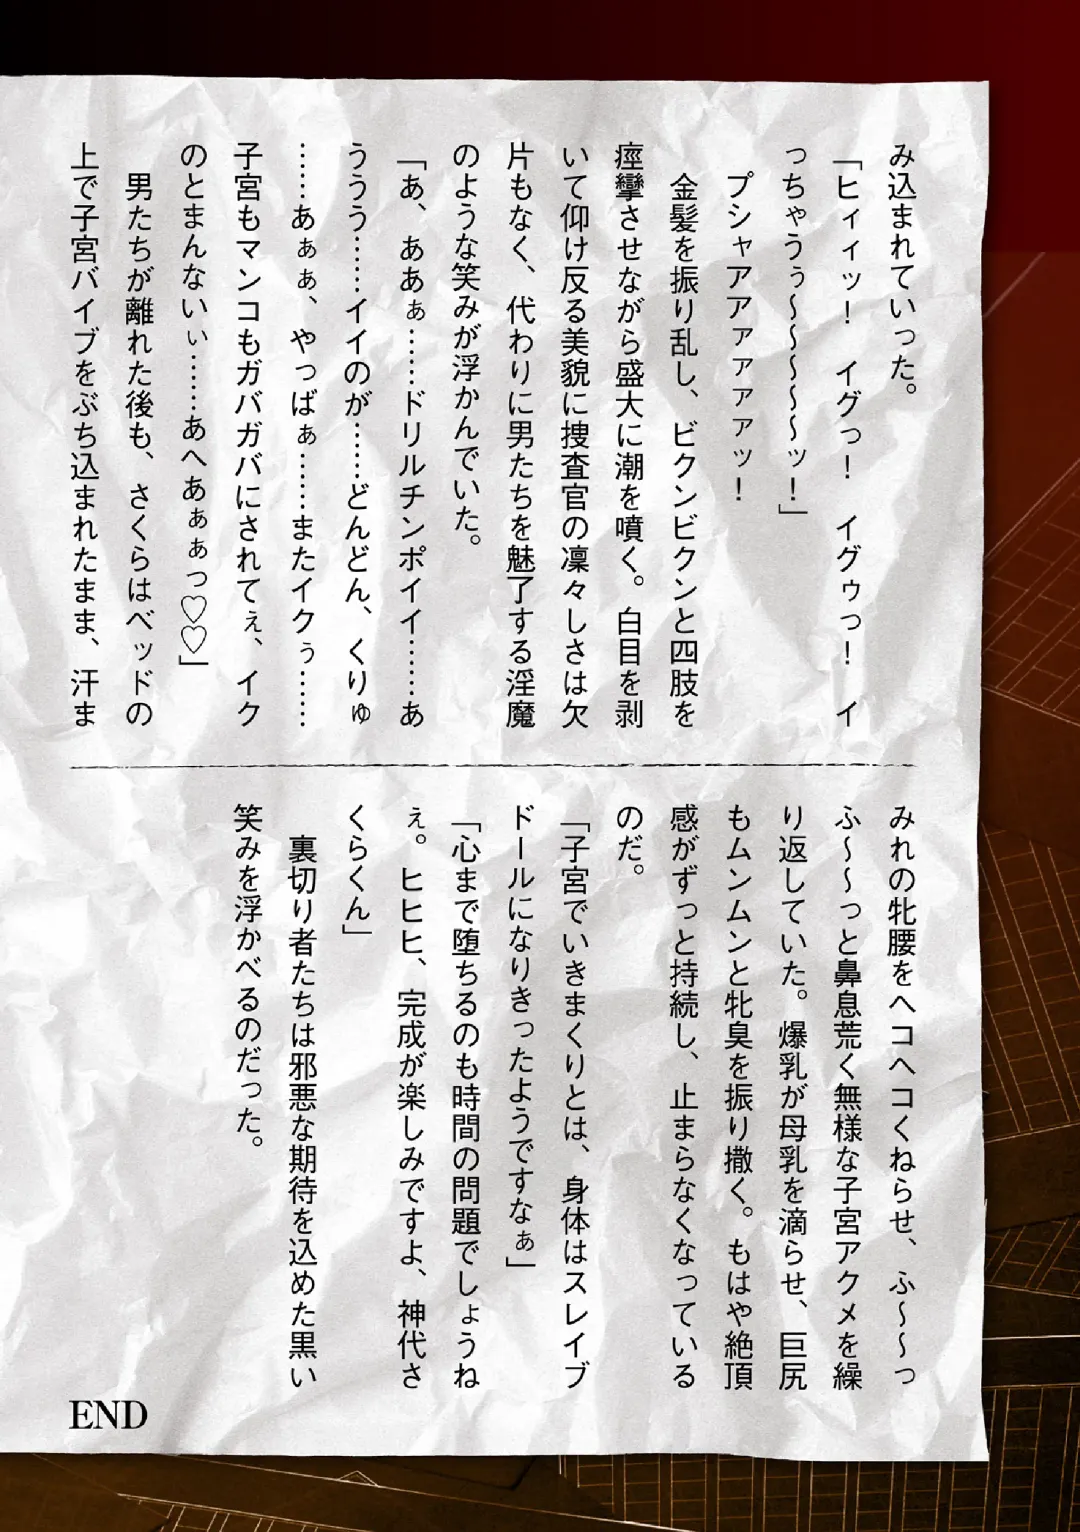 み込まれていった。
「ヒィィッ！　イグっ！　イグゥっ！　イ
っちゃうぅ～～～～～ッ！」
　プシャアアァァァァッ！
　金髪を振り乱し、ビクンビクンと四肢を
痙攣させながら盛大に潮を噴く。白目を剥
いて仰け反る美貌に捜査官の凜々しさは欠
片もなく、代わりに男たちを魅了する淫魔
のような笑みが浮かんでいた。
「あ、ああぁ……ドリルチンポイイ……あ
ううう……イイのが……どんどん、くりゅ
……あぁぁ、やっばぁ……またイクぅ……
子宮もマンコもガバガバにされてぇ、イク
のとまんないぃ……あへあぁぁっ♡♡」
　男たちが離れた後も、さくらはベッドの
上で子宮バイブをぶち込まれたまま、汗ま
みれの牝腰をヘコヘコくねらせ、ふ～～っ
ふ～～っと鼻息荒く無様な子宮アクメを繰
り返していた。爆乳が母乳を滴らせ、巨尻
もムンムンと牝臭を振り撒く。もはや絶頂
感がずっと持続し、止まらなくなっている
のだ。
「子宮でいきまくりとは、身体はスレイブ
ドールになりきったようですなぁ」
「心まで堕ちるのも時間の問題でしょうね
ぇ。ヒヒヒ、完成が楽しみですよ、神代さ
くらくん」
　裏切り者たちは邪悪な期待を込めた黒い
笑みを浮かべるのだった。
END